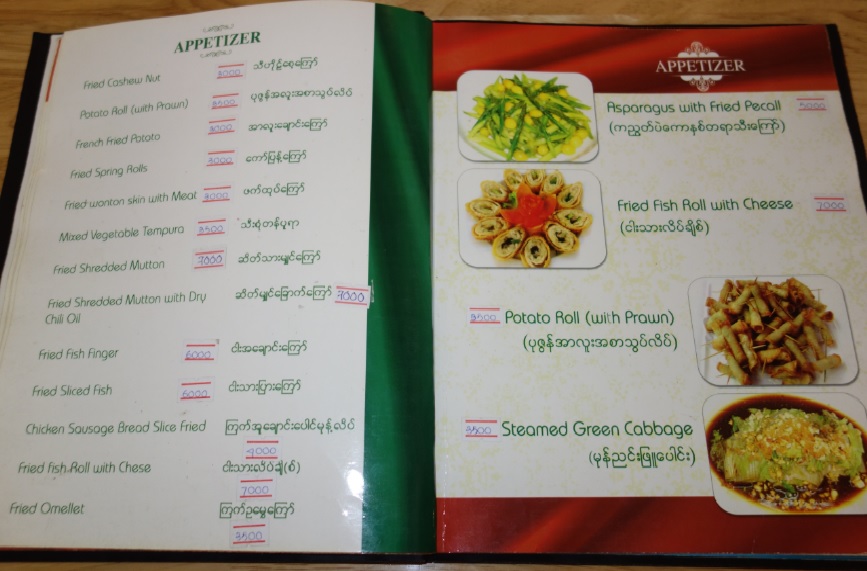 APPETIZER
Fried Cashew Nut 3000 သီဟိုဠ်စေ့ကြော်
Potato Roll (with Prawn) 3500 ပုဇွန်အာလူးအစာသွပ်လိပ်
French Fried Potato 3000 အာလူးချောင်းကြော်
Fried Spring Rolls 4000 ကော်ပြန့်ကြော်
Fried wonton skin with Meat 3000 ဖက်ထုပ်ကြော်
Mixed Vegetable Tempura 3500 သီးစုံတန်ပူရာ
Fried Shredded Mutton 7000 ဆိတ်သားမွှင်ကြော်
Fried Shredded Mutton with Dry ဆိတ်မွှင်ခြောက်ကြော် 7000
Chili Oil
Fried Fish Finger 6000 ငါးအချောင်းကြော်
Fried Sliced Fish 6000 ငါးသားပြားကြော်
Chicken Sausage Bread Slice Fried ကြက်အူချောင်းပေါင်မုန့်လိပ်
4000
Fried fish Roll with Chese ငါးသားလိပ်ချိ(စ်)
7000
Fried Omellet ကြက်ဥမွှေကြော်
3500
APPETIZER
Asparagus with Fried Pecall 5000
(ကညွတ်ပဲကောနစ်တရာသီးကြော်)
Fried Fish Roll with Cheese 7000
(ငါးသားလိပ်ချိစ်)
3500 Potato Roll (with Prawn)
(ပုဇွန်အာလူးအစာသွပ်လိပ်)
3500 Steamed Green Cabbage
(မုန်ညင်းဖြူပေါင်း)